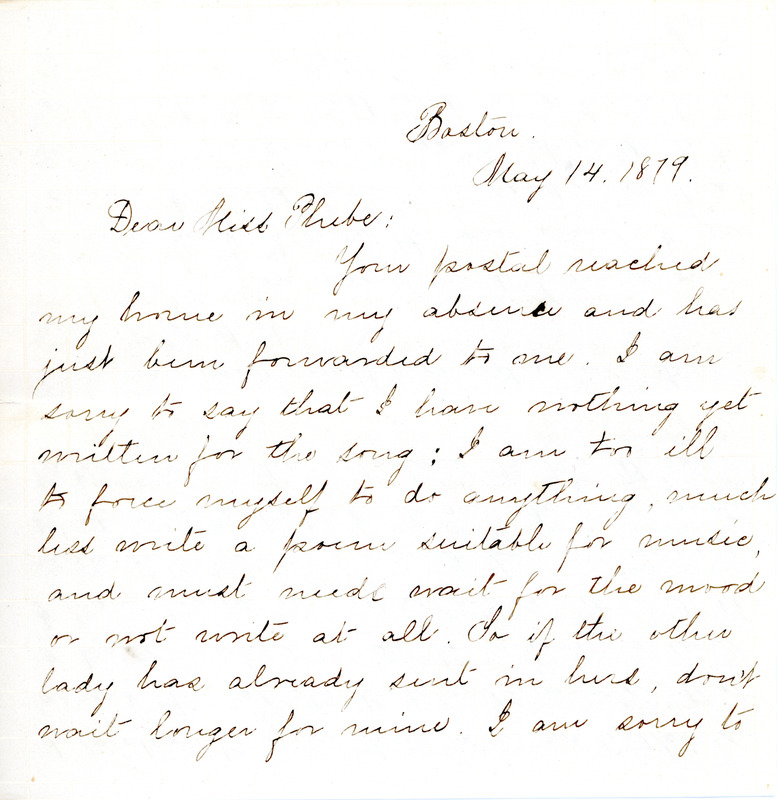 Boston.
May 14. 1879.
Dear Miss Phebe:
Your postal reached
my home in my absence and has
just been forwarded to me. I am
sorry to say that I have nothing yet
written for the song; I am too ill
to force myself to do anything, much
less write a poem suitable for music,
and must needs wait for the mood
or not write at all. So if the other
lady has already sent in hers, don't
wait longer for mine. I am sorry to